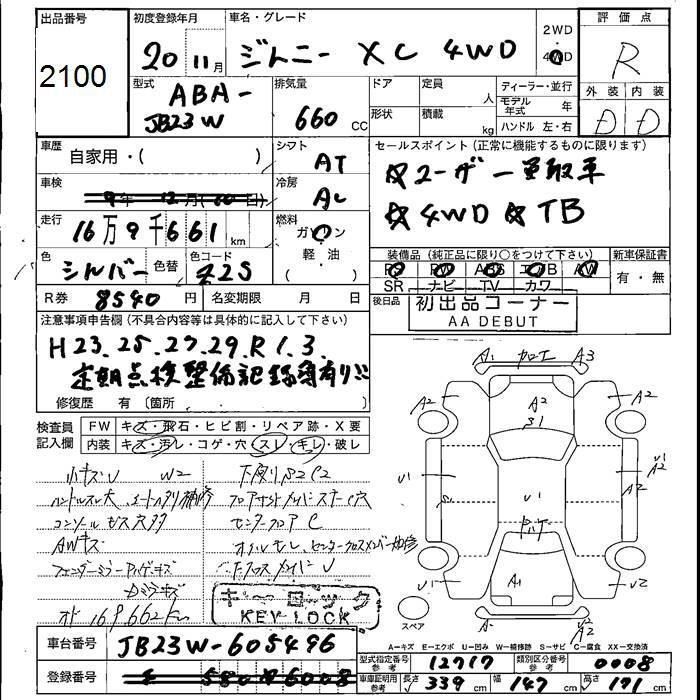 出品番号
2100
初度登録年月
20 11月
車名・グレード
ジムニー XC 4WD
2WD
・
4WD
評価点
R
外装 内装
D D
型式
ABA-
JB23W
排気量
660 CC
ドア
形状
定員 人
積載 kg
ディーラー・並行
モデル年式 年
ハンドル 左・右
車歴
自家用・( )
シフト
AT
車検
冷房
AC
走行
16万9千661km
燃料
ガソリン
軽・油
( )
色
シルバー
色替
色コード
Z2S
R券 8540円
名変期限 月 日
セールスポイント(正常に機能するものに限ります)
☆ユーザー買取車
☆4WD ☆TB
装備品(純正品に限り○をつけて下さい)
PS PW ABS エアB AW
SR ナビ TV カワ
新車保証書
有・無
後日品
初出品コーナー
AA DEBUT
注意事項申告欄(不具合内容等は具体的に記入して下さい)
H23.25.27.29.R1.3
定期点検整備記録簿有り!!
修復歴 有 〔箇所 〕
検査員
記入欄
FW キズ・飛石・ヒビ割・リペア跡・X要
内装 キズ・汚レ・コゲ・穴・スレ・キレ・破レ
小キズU W2
下廻りS2C2
ハンドルスレ大
コンソールビス穴多
センターフロアC
AWキズ
オイルモレ
フェンダーミラー
メーター 169,662km
キーロック
KEY LOCK
A1 加工 A3
A2 A2 A2
S1
U1 U1
V2
A2
S1
A2
U1 A1 U2
スペア
A-キズ E-エクボ U-凹み W-補修跡 S-サビ C-腐食 XX-交換済
車台番号 JB23W-605496
型式指定番号 参考 12717
類別区分番号 参考 0008
登録番号
車庫証明用 参考 長さ 339cm 幅 147cm 高さ 171cm